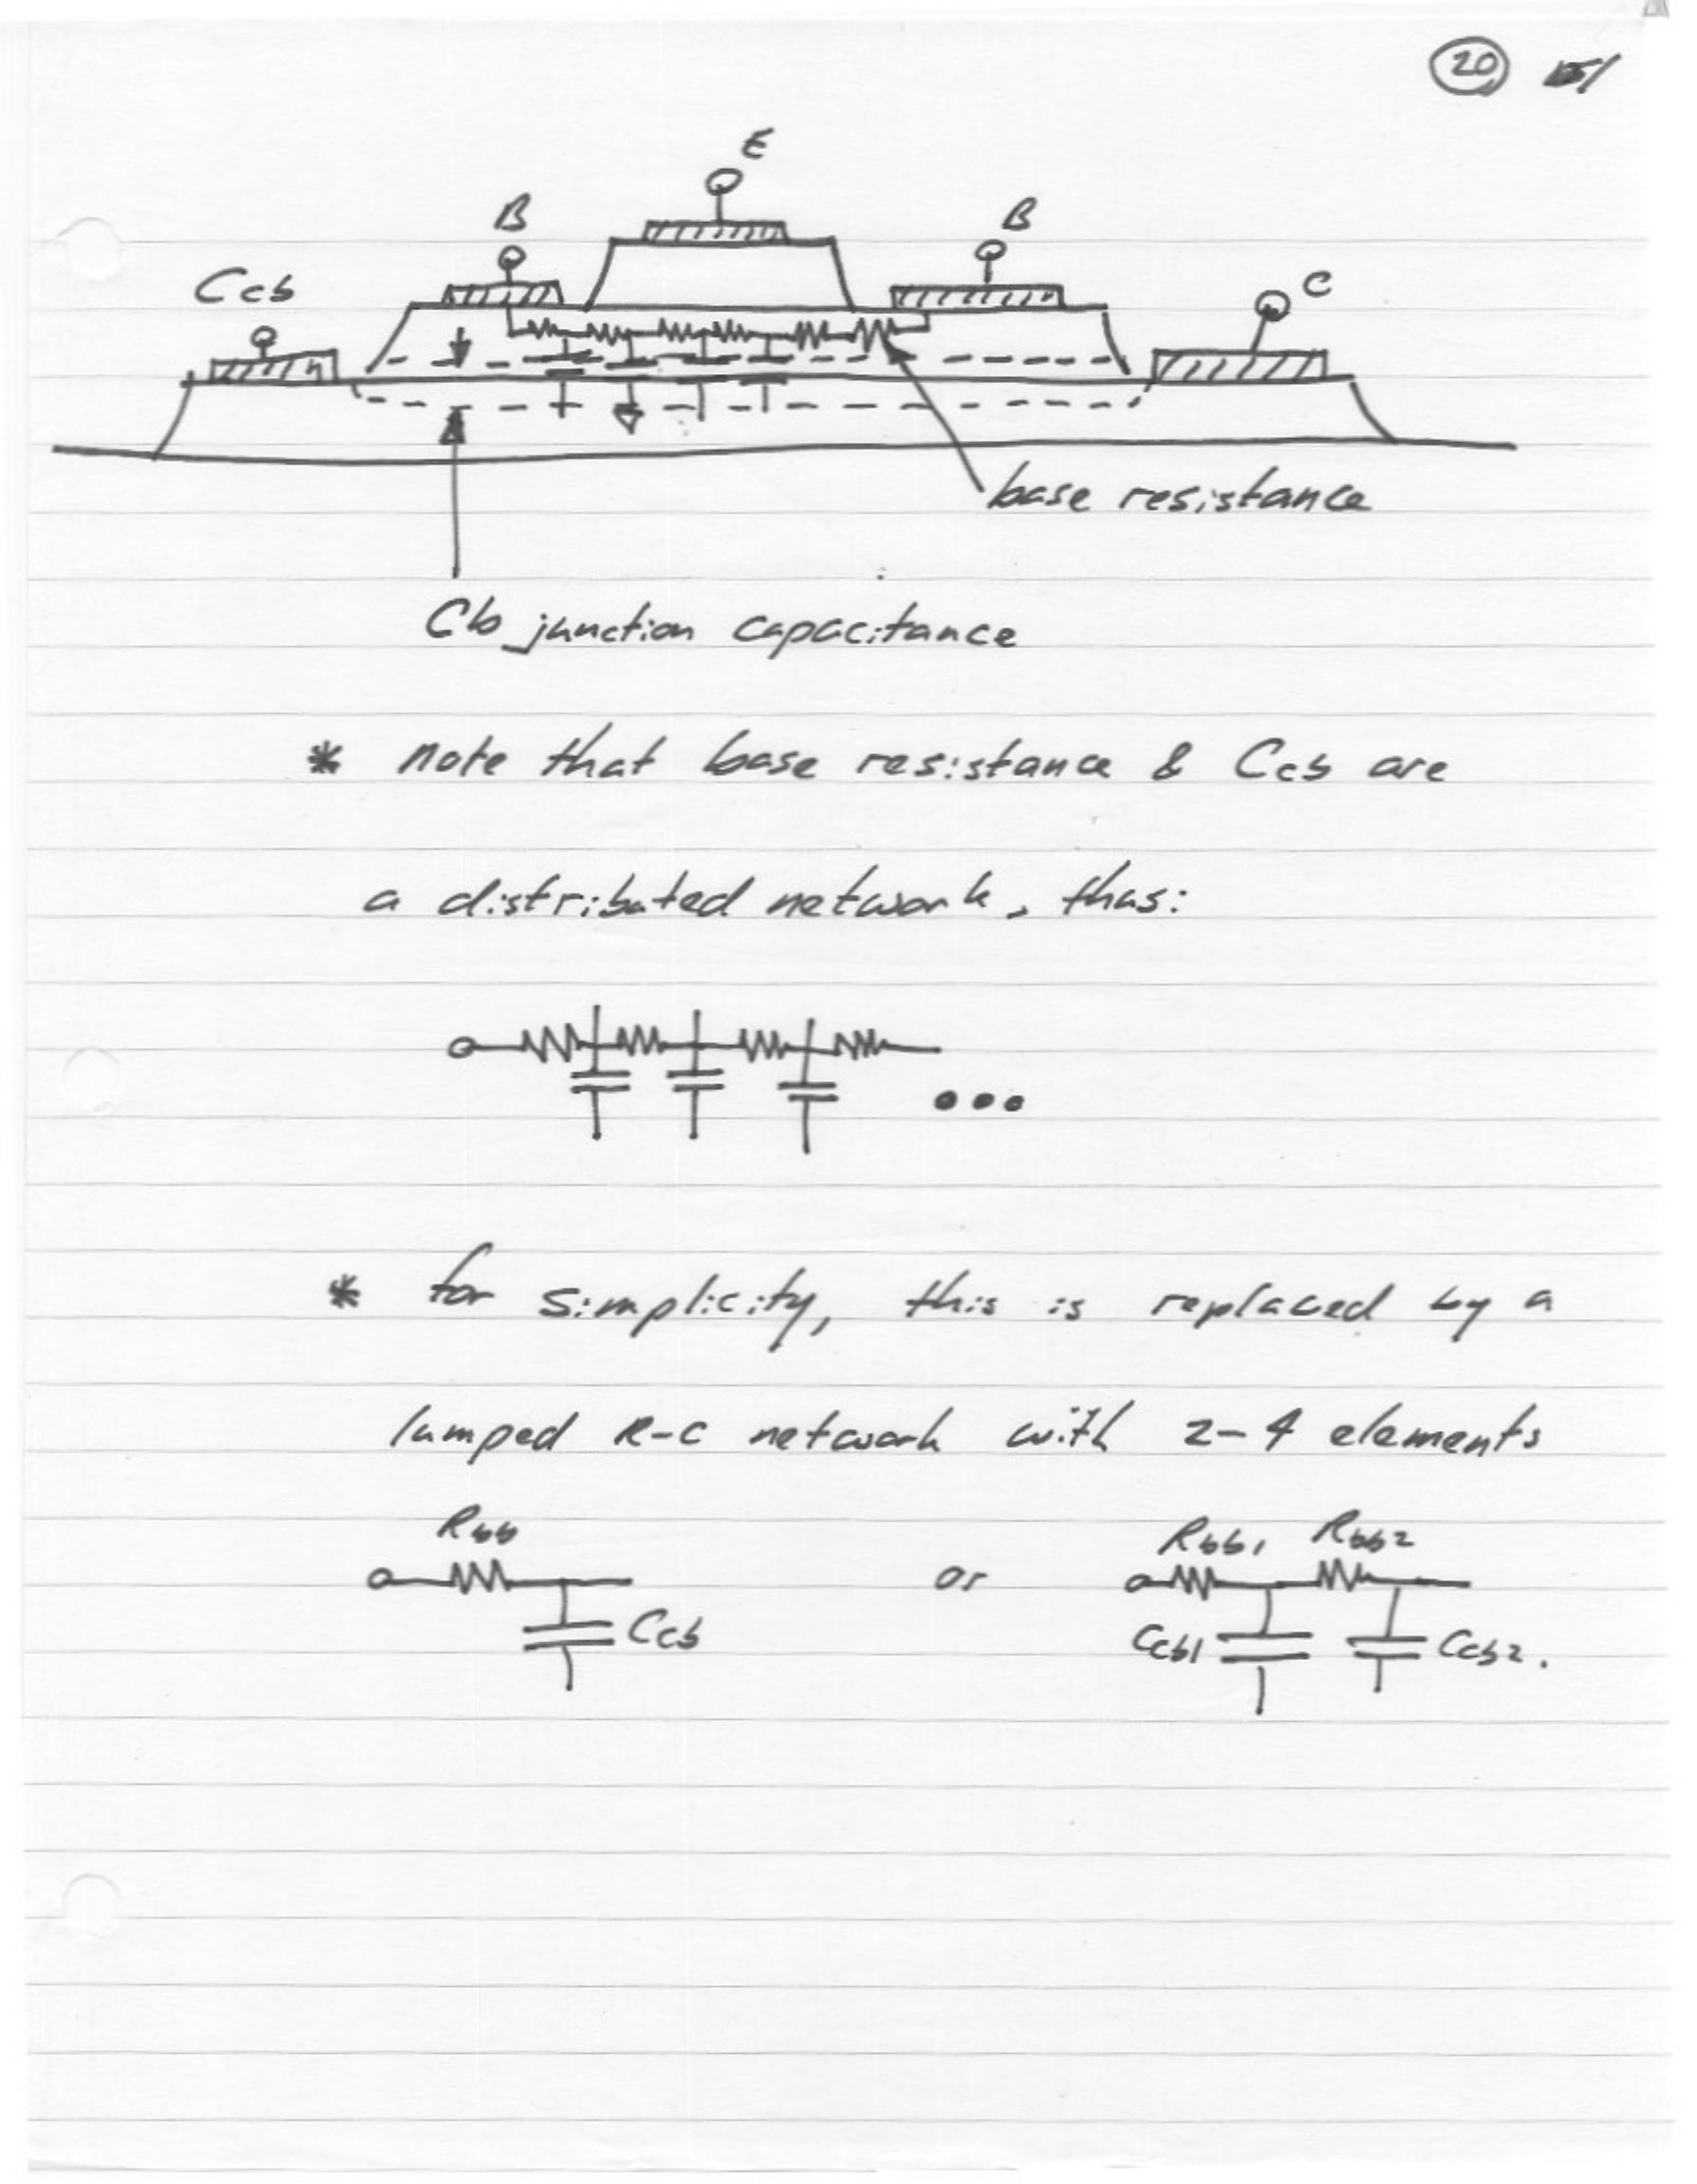 20
E
B
B
Ccb
C
base resistance
Cb junction capacitance
* note that base resistance & Ccb are
a distributed network, thus:
* for simplicity, this is replaced by a
lumped R-C network with 2-4 elements
Rbb
Rbb1 Rbb2
or
Ccb
Ccb1
Ccb2.